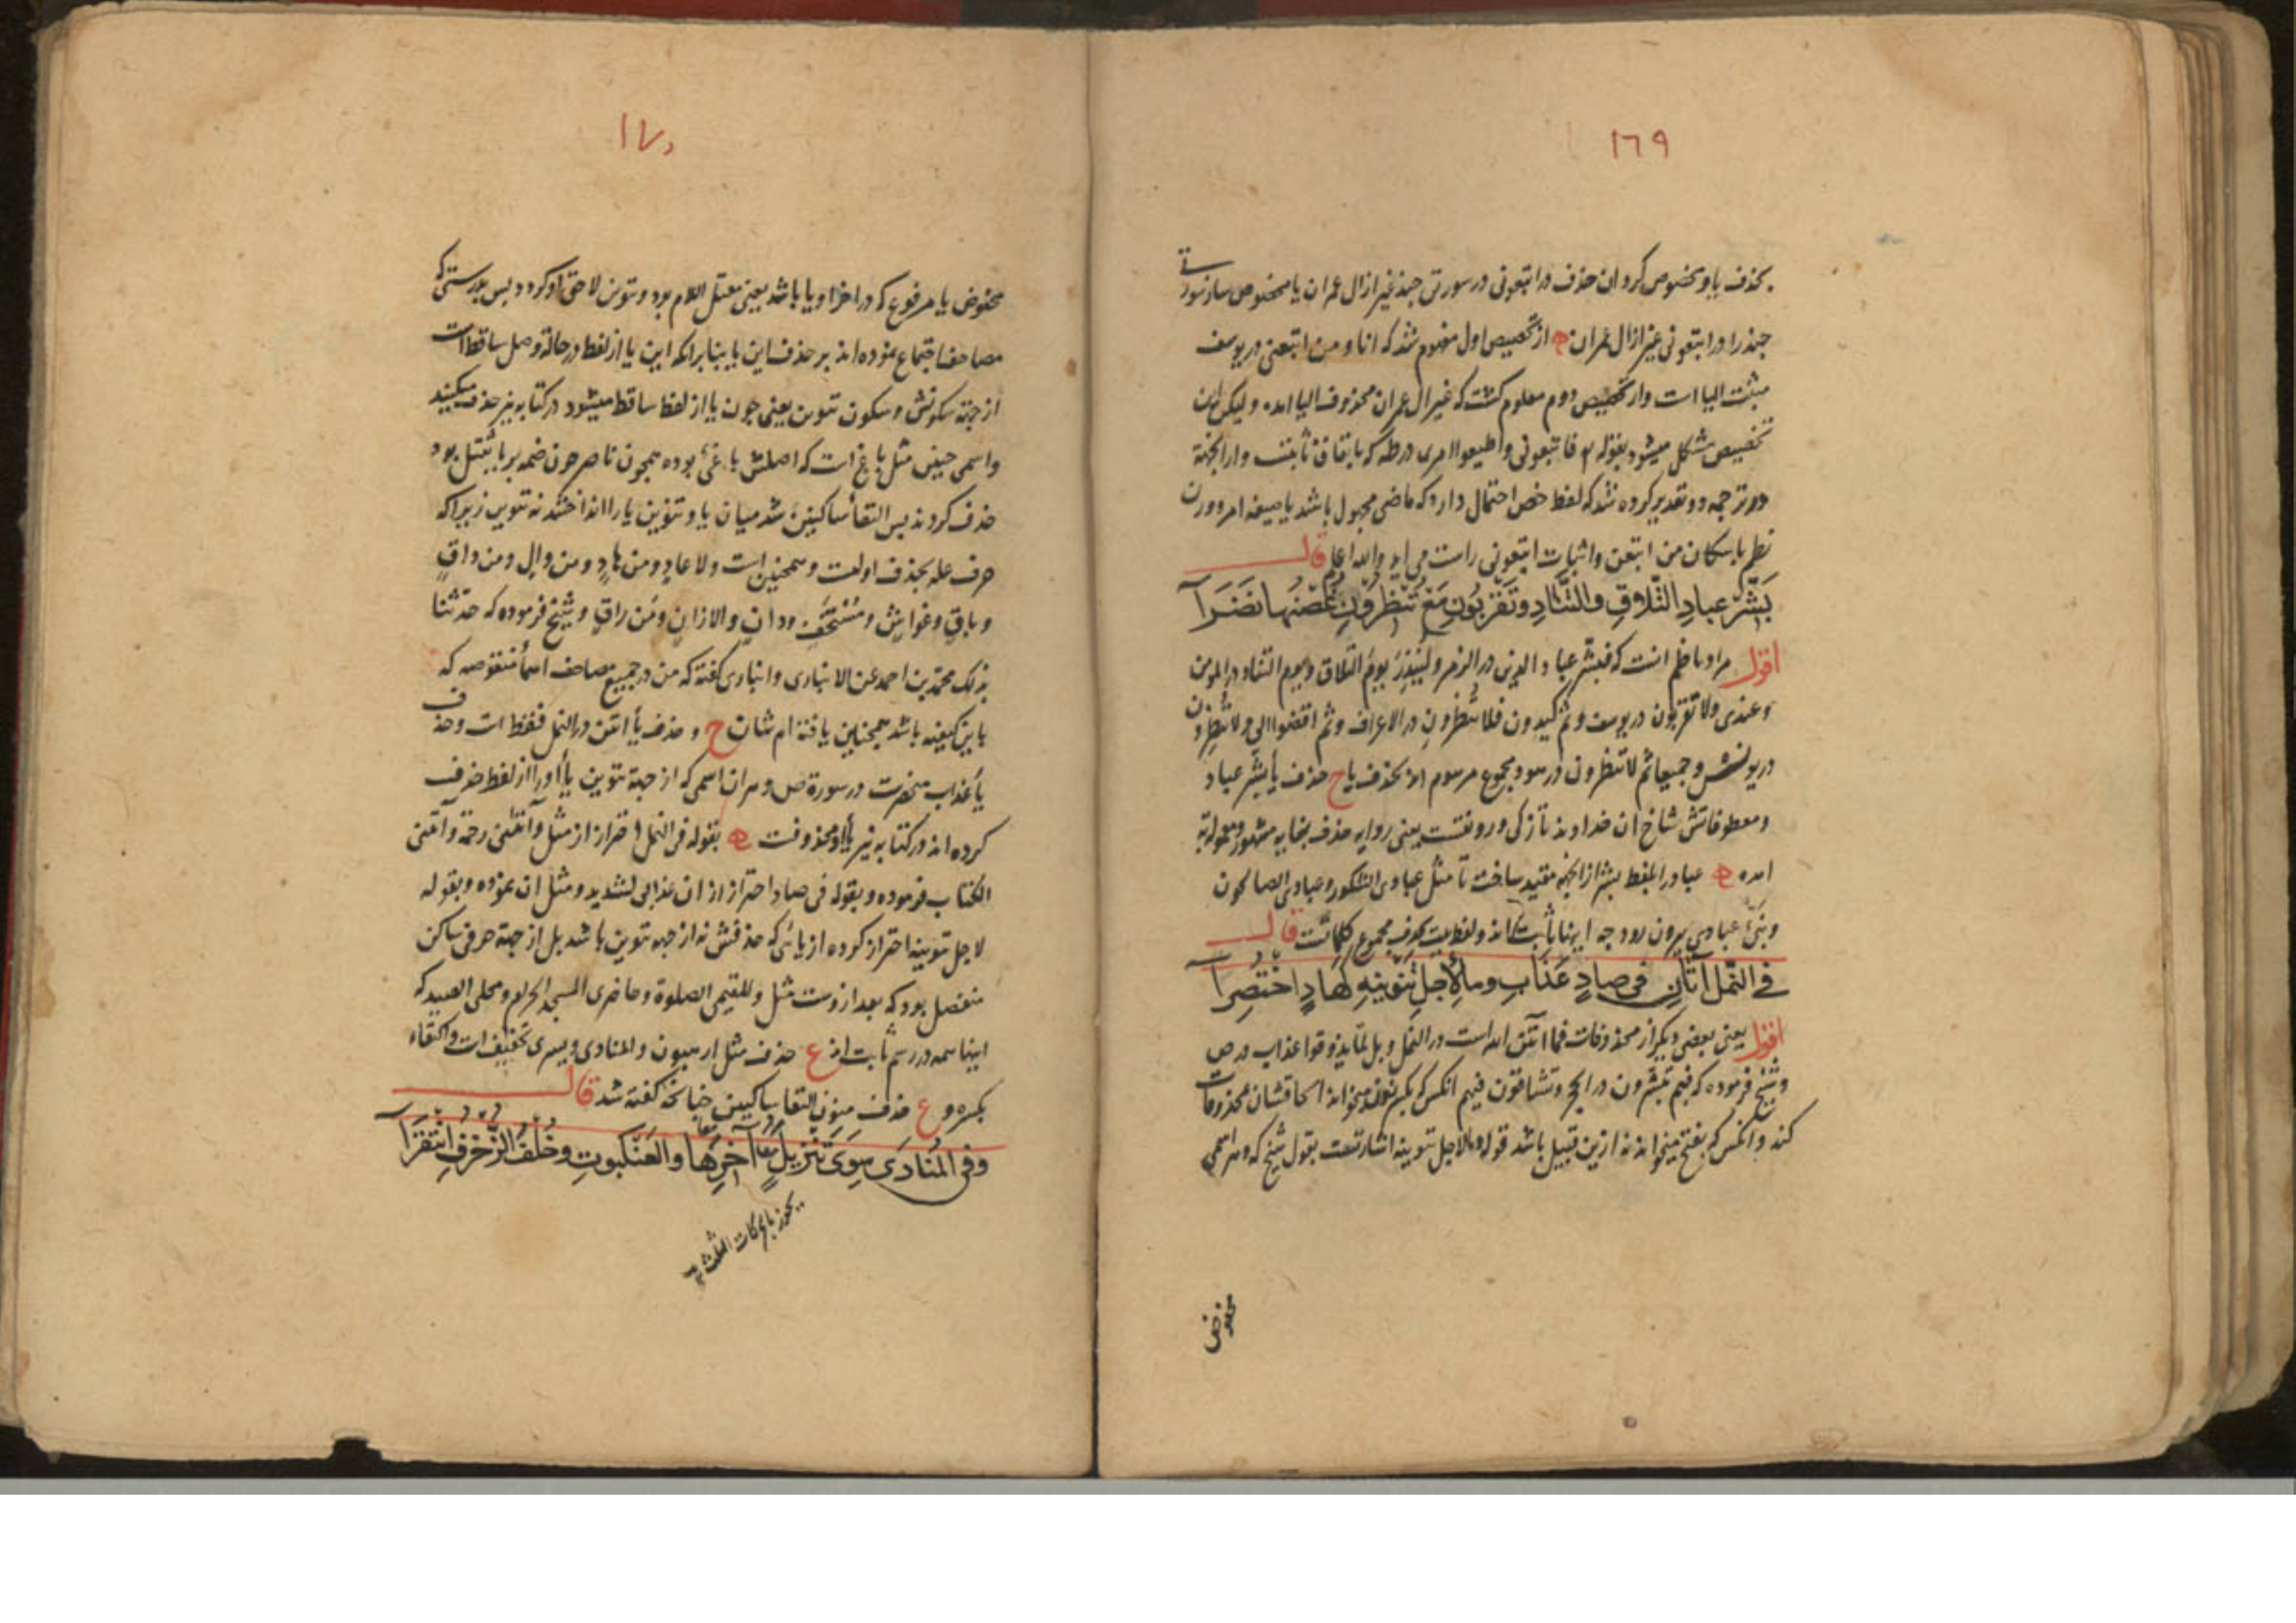 ١٦٩
بحذف یا و مخصوص کردان حذف در اتبعونی در سورتی چند غیر از ال عمران یا مخصوص ساز سورتی
چند را در اتبعونی غیر از ال عمران از تخصیص اول مفهوم شد که انا و من اتبعنی در یوسف
مثبت الیا است و از تخصیص دوم معلوم کشت که غیر ال عمران محذوف الیا اند و لیکن این
تخصیص مشکل میشود بقوله فاتبعونی و اطیعوا امری در طه که باتفاق ثابتست و از انجهة
در ترجمه دو تقدیر کرده شد که لفظ خص احتمال دارد که ماضی مجهول باشد یا صیغه امر و وزن
نظم باسکان من اتبعن و اثبات اتبعونی راست می اید والله اعلم قال
بَشِّرْ عبادِ التَّلاقِ والتَّنادِ وتَقْرَبُونِ مَعْ تُنْظِرُونِ غُصْنُها نَضَرَا
اقول مراد ناظم انست که فبشر عباد الذین در الزمر ولینذر یوم التلاق و یوم التناد در المومن
و عندی ولا تقربون در یوسف و ثم کیدون فلا تنظرون در الاعراف و ثم اقضوا الی ولا تنظرون
در یونس و جمیعا ثم لا تنظرون در هود مجموع مرسوم اند بحذف یا ح حذف یأ بشر عباد
و معطوفاتش شاخ ان خداوند تازکی و رونقست یعنی روایه حذف بغایه مشهور و معموله به
امده عباد را بلفظ بشر از انجهة مقید ساخت تا مثل عبادی الشکور و عبادی الصالحون
و نبئ عبادی بیرون رود چه اینها ثابت اند و لفظیت بحذف مجموع کلماتست قال
في النَّمل آتانِ في صادٍ عَذَابِ وما لِأَجلِ تَنْوِينِهِ كَهَادٍ اخْتُصِرَا
اقول یعنی بعضی دیکر از محذوفات فما اتن الله است در النمل و بل لما یذوقوا عذاب در ص
و شیخ فرموده که فبم تبشرون در الحجر و تشاقون فیهم انکس که بکسر نون میخواند الحاقشان بمحذوفات
کند و انکس که بفتح میخواند نه ازین قبیل باشد قوله وما لاجل تنوینه اشارتست بقول شیخ که و هر اسمی
مخفوض
١٧٠
مخفوض یا مرفوع که در اخر او یا باشد یعنی معتل اللام بود و تنوین لاحق او کردد بس بدرستی که
مصاحف اجتماع نموده اند بر حذف این یا بنابرانکه این یا از لفظ در حالة وصل ساقط است
از جهة سکونش و سکون تنوین یعنی چون یا از لفظ ساقط میشود در کتابه نیز حذف میکنند
و اسمی چنین مثل باغ است که اصلش باغی بوده همچون ناصر چون ضمه بر یا ثقیل بود
حذف کردند بس التقأ ساکنین شد میان یا و تنوین یا را انداختند نه تنوین زیراکه
حرف عله بحذف اولست و همچنین است ولا عادٍ و من هادٍ و من والٍ و من واقٍ
و باقٍ و غواشٍ و مستخفٍ و دانٍ والا زانٍ و من راقٍ و شیخ فرموده که حدثنا
بذلک محمد بن احمد عن الانباری و انباری کفته که من در جمیع مصاحف اسمأ منقوصه که
باین کیفیه باشد همچنین یافته ام شان ح و حذف یأ اتن در النمل فقط است و حذف
یأ عذاب منحصرست در سورة ص و هر ان اسمی که از جهة تنوین یأ او را از لفظ حذف
کرده اند در کتابه نیز یأ او محذوفست بقوله فی النمل احتراز از مثل و آتنی رحمة و آتنی
الکتاب فرموده و بقوله فی صاد احتراز از ان عذابی لشدید و مثل ان نموده و بقوله
لاجل تنوینه احتراز کرده از یائی که حذفش نه از جهة تنوین باشد بل از جهة حرفی ساکن
منفصل بود که بعد ازوست مثل والمقیمی الصلوة و حاضری المسجد الحرام و محلی الصید که
اینها همه در رسم ثابت اند ع حذف مثل ارهبون و المنادی و یسری تخفیف است و اکتفاء
بکسره و ع حذف منون التقا ساکنین چنانچه کفته شد قال
وفي المُنادَى سِوَى تَنْزِيلُ آخِرِهَا والعَنْكبوتِ وخُلْفُ الزُّخْرُفِ انْتَقَرَا
یجوز بالحرکات الثلث